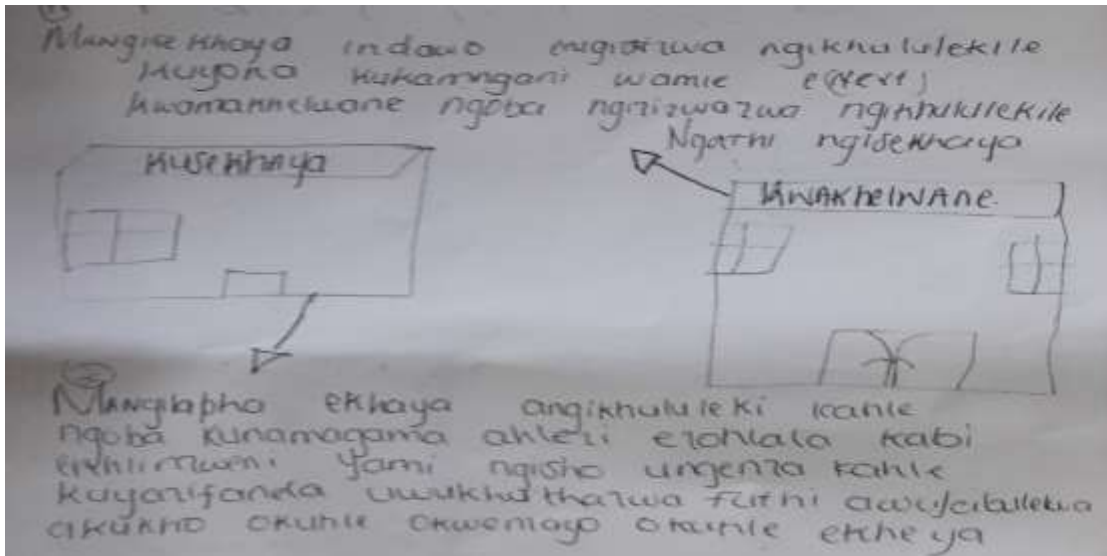 Mangisekhaya indawo engizizwa ngikhululekile
kuyona kukamngani wami e(next)
kwamakhelwane ngoba ngizizwazwa ngikhululekile
Ngathi ngisekhaya
Kusekhaya
KWAKhelWAne
Mangilapho ekhaya angikhululeki kahle
ngoba kunamagama ahlezi ezohlala kabi
yami ngisho ungenza kahle
futhi
akukho okuhle okwenzayo okuhle ekheya